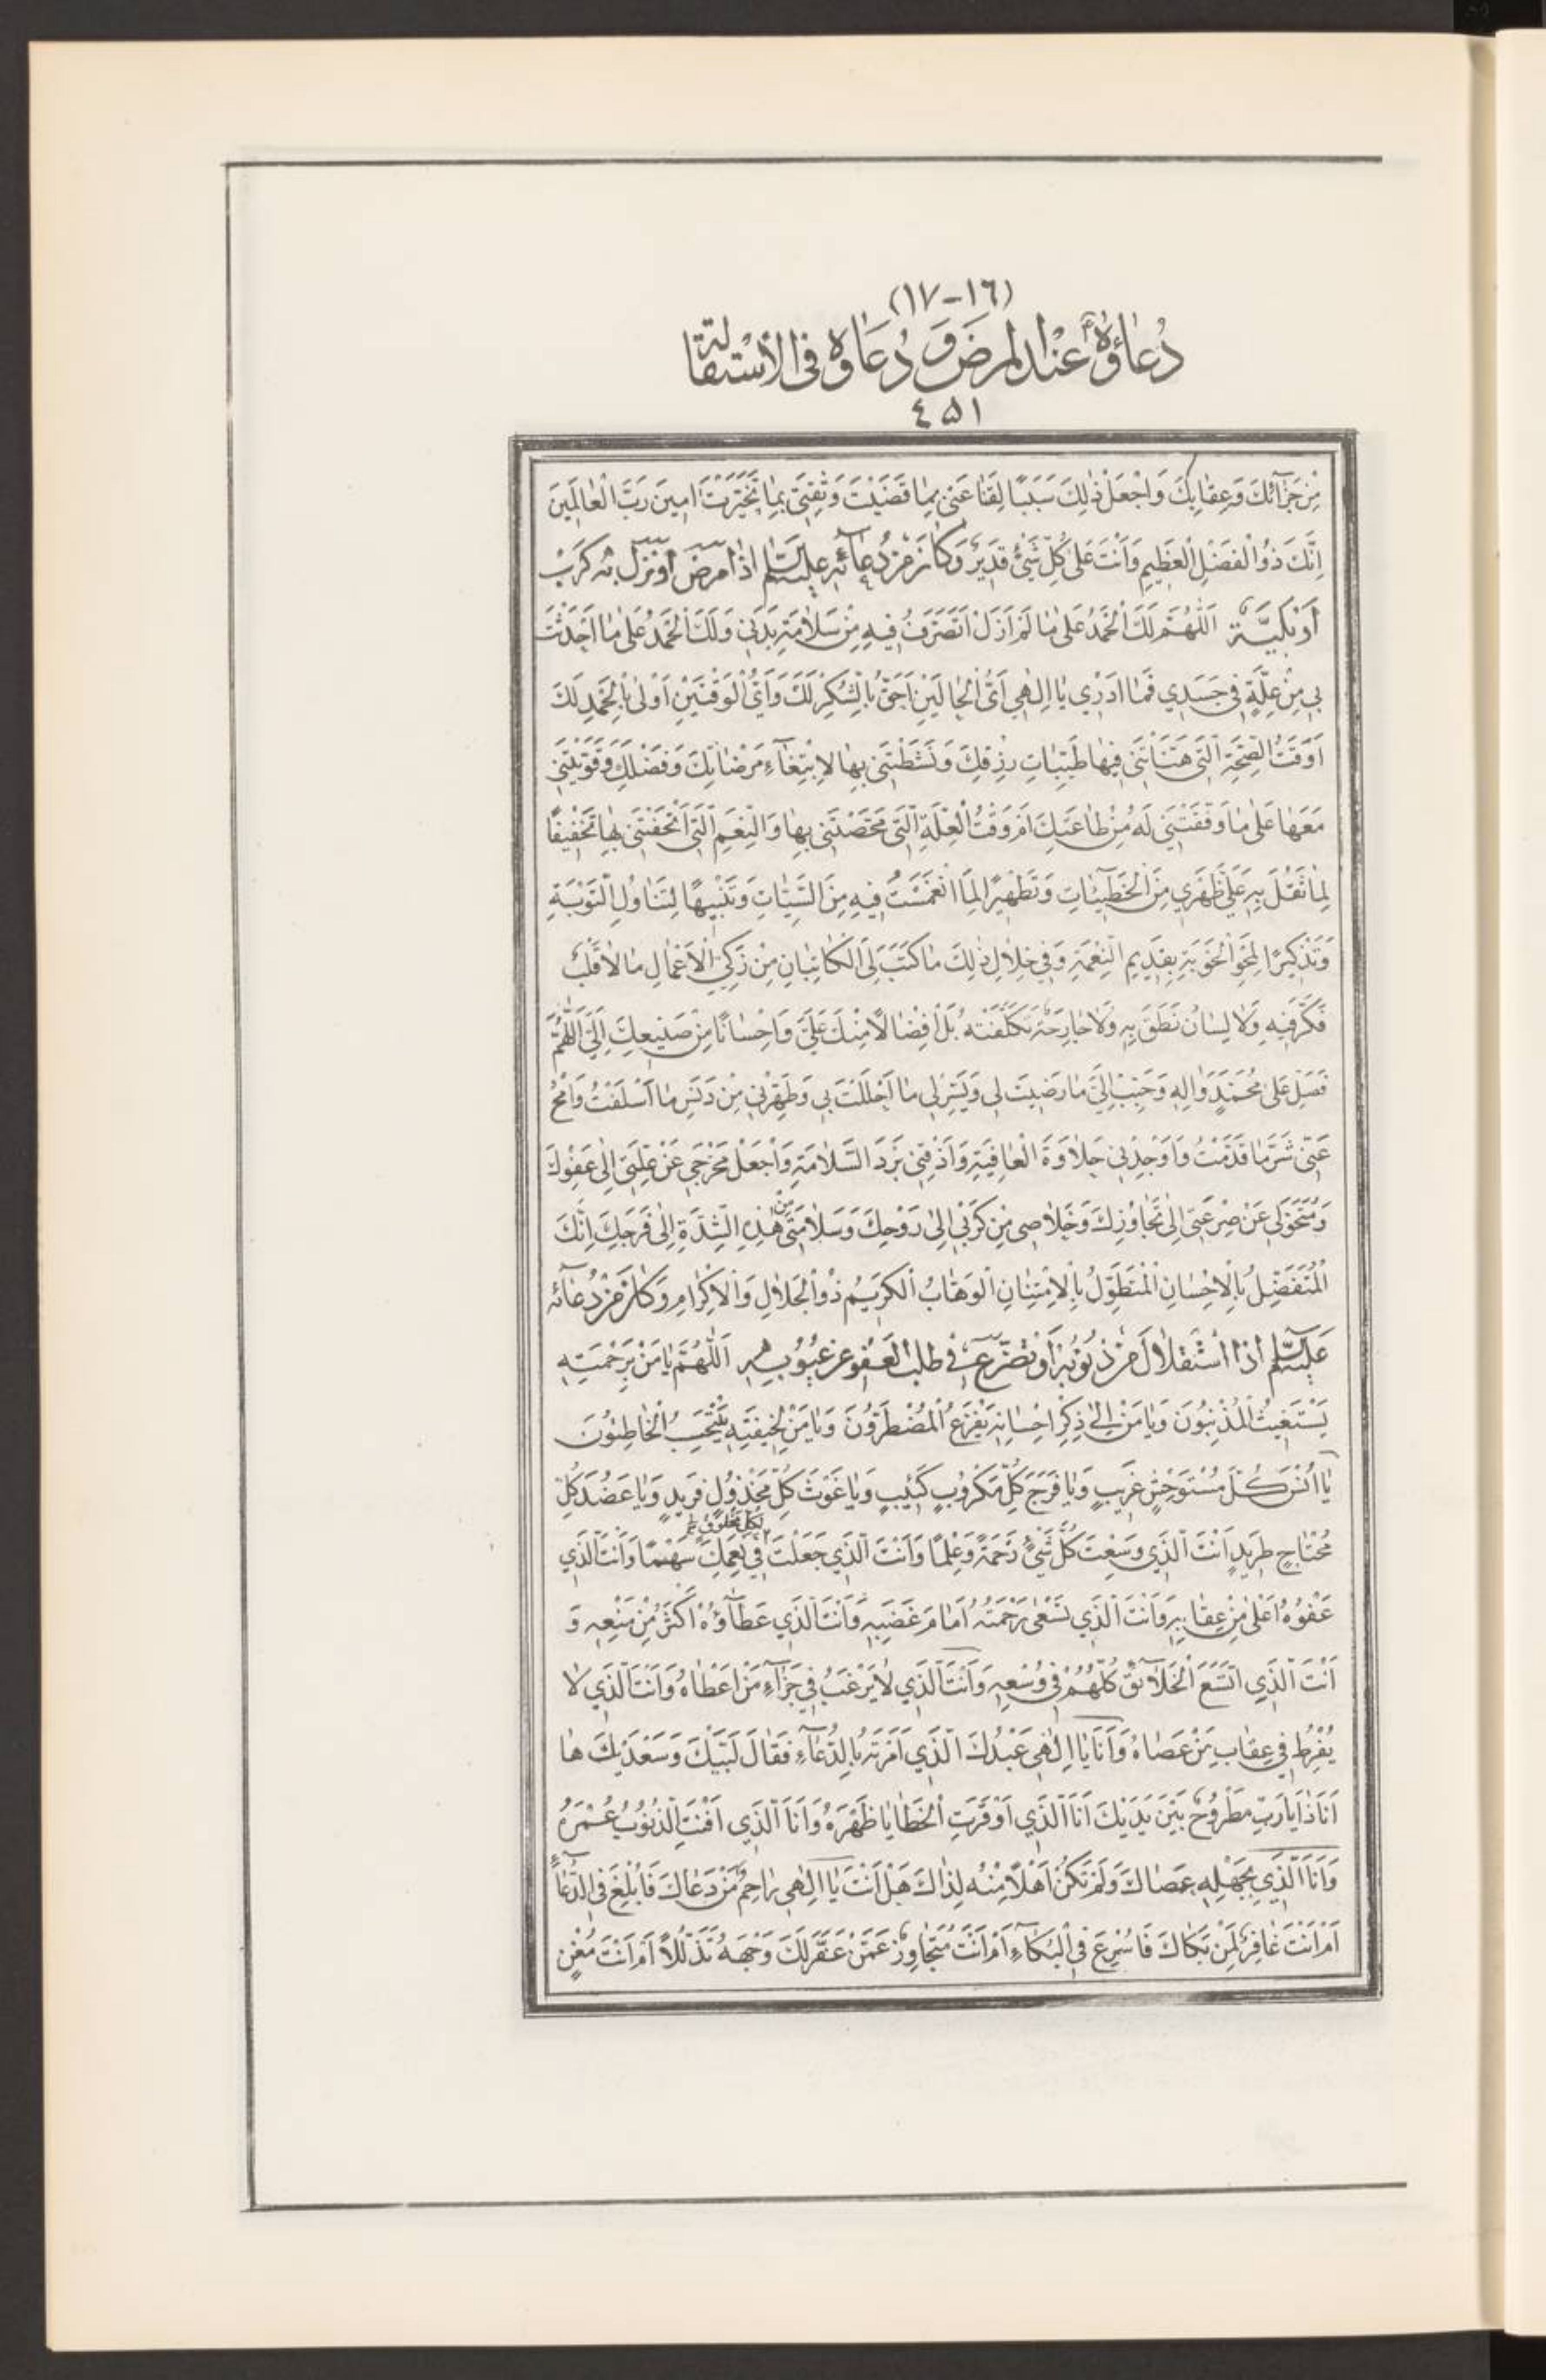 (١٦-١٧)
دُعاؤُهُ عِنْدَ الْمَرَضِ وَ دُعَاؤه فِى الْأِسْتِقالَة
٤٥١
مِنْ جَزآئِكَ وَعِقابِكَ وَاجْعَلْ ذٰلِكَ سَبَبًا لِقَناعَتي بِمٰا قَضَيْتَ وَثِقَتي بِمٰا تَخَيَّرْتَ اٰمينَ رَبَّ الْعٰالَمينَ
اِنَّكَ ذُو الْفَضْلِ الْعَظيمِ وَاَنْتَ عَلىٰ كُلِّ شَيْئٍ قَديرٌ وَكٰانَ مِنْ دُعٰائِهِ عَلَيْهِ السَّلٰم اِذٰا مَرِضَ اَوْ نَزَلَ بِهِ كَرْبٌ
اَوْ بَلِيَّةٌ اَللّٰهُمَّ لَكَ الْحَمْدُ عَلىٰ مٰا لَمْ اَزَلْ اَتَصَرَّفُ فيهِ مِنْ سَلاٰمَةِ بَدَني وَلَكَ الْحَمْدُ عَلىٰ مٰا اَحْدَثْتَ
بي مِنْ عِلَّةٍ في جَسَدي فَمٰا اَدْري يٰا اِلٰهي اَيُّ الْحٰالَيْنِ اَحَقُّ بِالشُّكْرِ لَكَ وَاَيُّ الْوَقْتَيْنِ اَوْلىٰ بِالْحَمْدِ لَكَ
اَوَقْتُ الصِّحَّةِ الَّتي هَنَّأْتَني فيهٰا طَيِّبٰاتِ رِزْقِكَ وَنَشَّطْتَني بِهٰا لِابْتِغٰآءِ مَرْضٰاتِكَ وَفَضْلِكَ وَقَوَّيْتَني
مَعَهٰا عَلىٰ مٰا وَفَّقْتَني لَهُ مِنْ طٰاعَتِكَ اَمْ وَقْتُ الْعِلَّةِ الَّتي مَحَّصْتَني بِهٰا وَالنِّعَمِ الَّتي اَتْحَفْتَني بِهٰا تَخْفيفًا
لِمٰا ثَقُلَ بِهِ عَلىٰ ظَهْري مِنَ الْخَطيٓئٰاتِ وَتَطْهيرًا لِمَا انْغَمَسْتُ فيهِ مِنَ السَّيِّئٰاتِ وَتَنْبيهًا لِتَنٰاوُلِ التَّوْبَةِ
وَتَذْكيرًا لِمَحْوِ الْحَوْبَةِ بِقَديمِ النِّعْمَةِ وَفي خِلٰالِ ذٰلِكَ مٰا كَتَبَ لِيَ الْكٰاتِبٰانِ مِنْ زَكِيِّ الْاَعْمٰالِ مٰا لٰا قَلْبٌ
فَكَّرَ فيهِ وَلٰا لِسٰانٌ نَطَقَ بِهِ وَلٰا جٰارِحَةٌ تَكَلَّفَتْهُ بَلْ اِفْضٰالًا مِنْكَ عَلَيَّ وَاِحْسٰانًا مِنْ صَنيعِكَ اِلَيَّ اَللّٰهُمَّ
فَصَلِّ عَلىٰ مُحَمَّدٍ وَاٰلِهِ وَحَبِّبْ اِلَيَّ مٰا رَضيتَ لي وَيَسِّرْ لي مٰا اَحْلَلْتَ بي وَطَهِّرْني مِنْ دَنَسِ مٰا اَسْلَفْتُ وَامْحُ
عَنّي شَرَّ مٰا قَدَّمْتُ وَاَوْجِدْني حَلٰاوَةَ الْعٰافِيَةِ وَاَذِقْني بَرْدَ السَّلٰامَةِ وَاجْعَلْ مَخْرَجي عَنْ عِلَّتي اِلىٰ عَفْوِكَ
وَمُتَحَوَّلي عَنْ صَرْعَتي اِلىٰ تَجٰاوُزِكَ وَخَلٰاصي مِنْ كَرْبي اِلىٰ رَوْحِكَ وَسَلٰامَتي مِنْ هٰذِهِ الشِّدَّةِ اِلىٰ فَرَجِكَ اِنَّكَ
الْمُتَفَضِّلُ بِالْاِحْسٰانِ الْمُتَطَوِّلُ بِالْاِمْتِنٰانِ الْوَهّٰابُ الْكَريمُ ذُو الْجَلٰالِ وَالْاِكْرٰامِ وَكٰانَ مِنْ دُعٰآئِهِ
عَلَيْهِ السَّلٰم اِذَا اسْتَقٰالَ مِنْ ذُنُوبِهِ اَوْ تَضَرَّعَ في طَلَبِ الْعَفْوِ عَنْ عُيُوبِهِ اَللّٰهُمَّ يٰا مَنْ بِرَحْمَتِهِ
يَسْتَغيثُ الْمُذْنِبُونَ وَيٰا مَنْ اِلىٰ ذِكْرِ اِحْسٰانِهِ يَفْزَعُ الْمُضْطَرُّونَ وَيٰا مَنْ لِخيفَتِهِ يَنْتَحِبُ الْخٰاطِئُونَ
يٰا اُنْسَ كُلِّ مُسْتَوْحِشٍ غَريبٍ وَيٰا فَرَجَ كُلِّ مَكْرُوبٍ كَئيبٍ وَيٰا غَوْثَ كُلِّ مَخْذُولٍ فَريدٍ وَيٰا عَضُدَ كُلِّ
مُحْتٰاجٍ طَريدٍ اَنْتَ الَّذي وَسِعْتَ كُلَّ شَيْئٍ رَحْمَةً وَعِلْمًا وَاَنْتَ الَّذي جَعَلْتَ لِكُلِّ مَخْلُوقٍ في نِعَمِكَ سَهْمًا وَاَنْتَ الَّذي
عَفْوُهُ اَعْلىٰ مِنْ عِقٰابِهِ وَاَنْتَ الَّذي تَسْعىٰ رَحْمَتُهُ اَمٰامَ غَضَبِهِ وَاَنْتَ الَّذي عَطٰآؤُهُ اَكْثَرُ مِنْ مَنْعِهِ وَ
اَنْتَ الَّذي اتَّسَعَ الْخَلٰآئِقُ كُلُّهُمْ في وُسْعِهِ وَاَنْتَ الَّذي لٰا يَرْغَبُ في جَزٰآءِ مَنْ اَعْطٰاهُ وَاَنْتَ الَّذي لٰا
يُفْرِطُ في عِقٰابِ مَنْ عَصٰاهُ وَاَنَا يٰا اِلٰهي عَبْدُكَ الَّذي اَمَرْتَهُ بِالدُّعٰآءِ فَقٰالَ لَبَّيْكَ وَسَعْدَيْكَ هٰا
اَنَا ذٰا يٰا رَبِّ مَطْرُوحٌ بَيْنَ يَدَيْكَ اَنَا الَّذي اَوْقَرَتِ الْخَطٰايٰا ظَهْرَهُ وَاَنَا الَّذي اَفْنَتِ الذُّنُوبُ عُمْرَهُ
وَاَنَا الَّذي بِجَهْلِهِ عَصٰاكَ وَلَمْ تَكُنْ اَهْلًا مِنْهُ لِذٰاكَ هَلْ اَنْتَ يٰا اِلٰهي رٰاحِمٌ مَنْ دَعٰاكَ فَاُبْلِغَ فِي الدُّعٰآءِ
اَمْ اَنْتَ غٰافِرٌ لِمَنْ بَكٰاكَ فَاُسْرِعَ فِي الْبُكٰآءِ اَمْ اَنْتَ مُتَجٰاوِزٌ عَمَّنْ عَفَّرَ لَكَ وَجْهَهُ تَذَلُّلًا اَمْ اَنْتَ مُغْنٍ